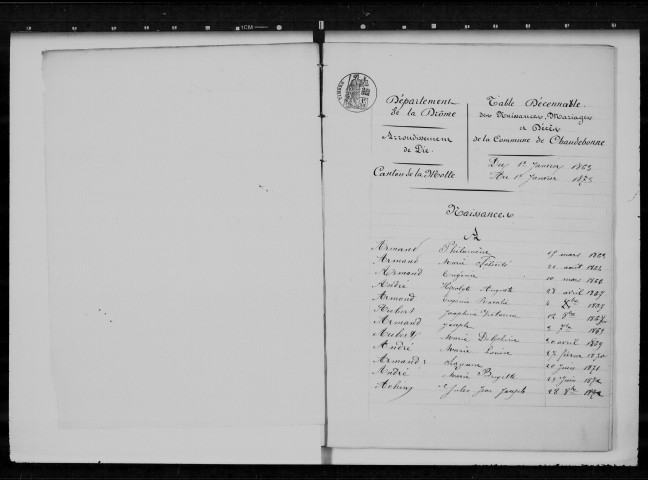 Département
de la Drôme
Arrondissement
de Die.
Canton de la Motte
Table Décennale
des Naissances, Mariages
et Décès
de la Commune de Chaudebonne
Du 1er Janvier 1863
Au 1er Janvier 1873
Naissances
A
Armand Philomène mars
Armand Marie août
Armand Eugénie 10 mars 1866
André Auguste avril 1867
Armand 4 Xbre
Aubert Joséphine 12 8bre
Armand Joseph 2 7bre
Aubert Marie Delphine 20 avril 1869
André Marie Louise 27 février 1870
Armand 20 Juin 1871
André Marie 23 Juin 1872
Jules Jean Joseph 28 8bre 1872